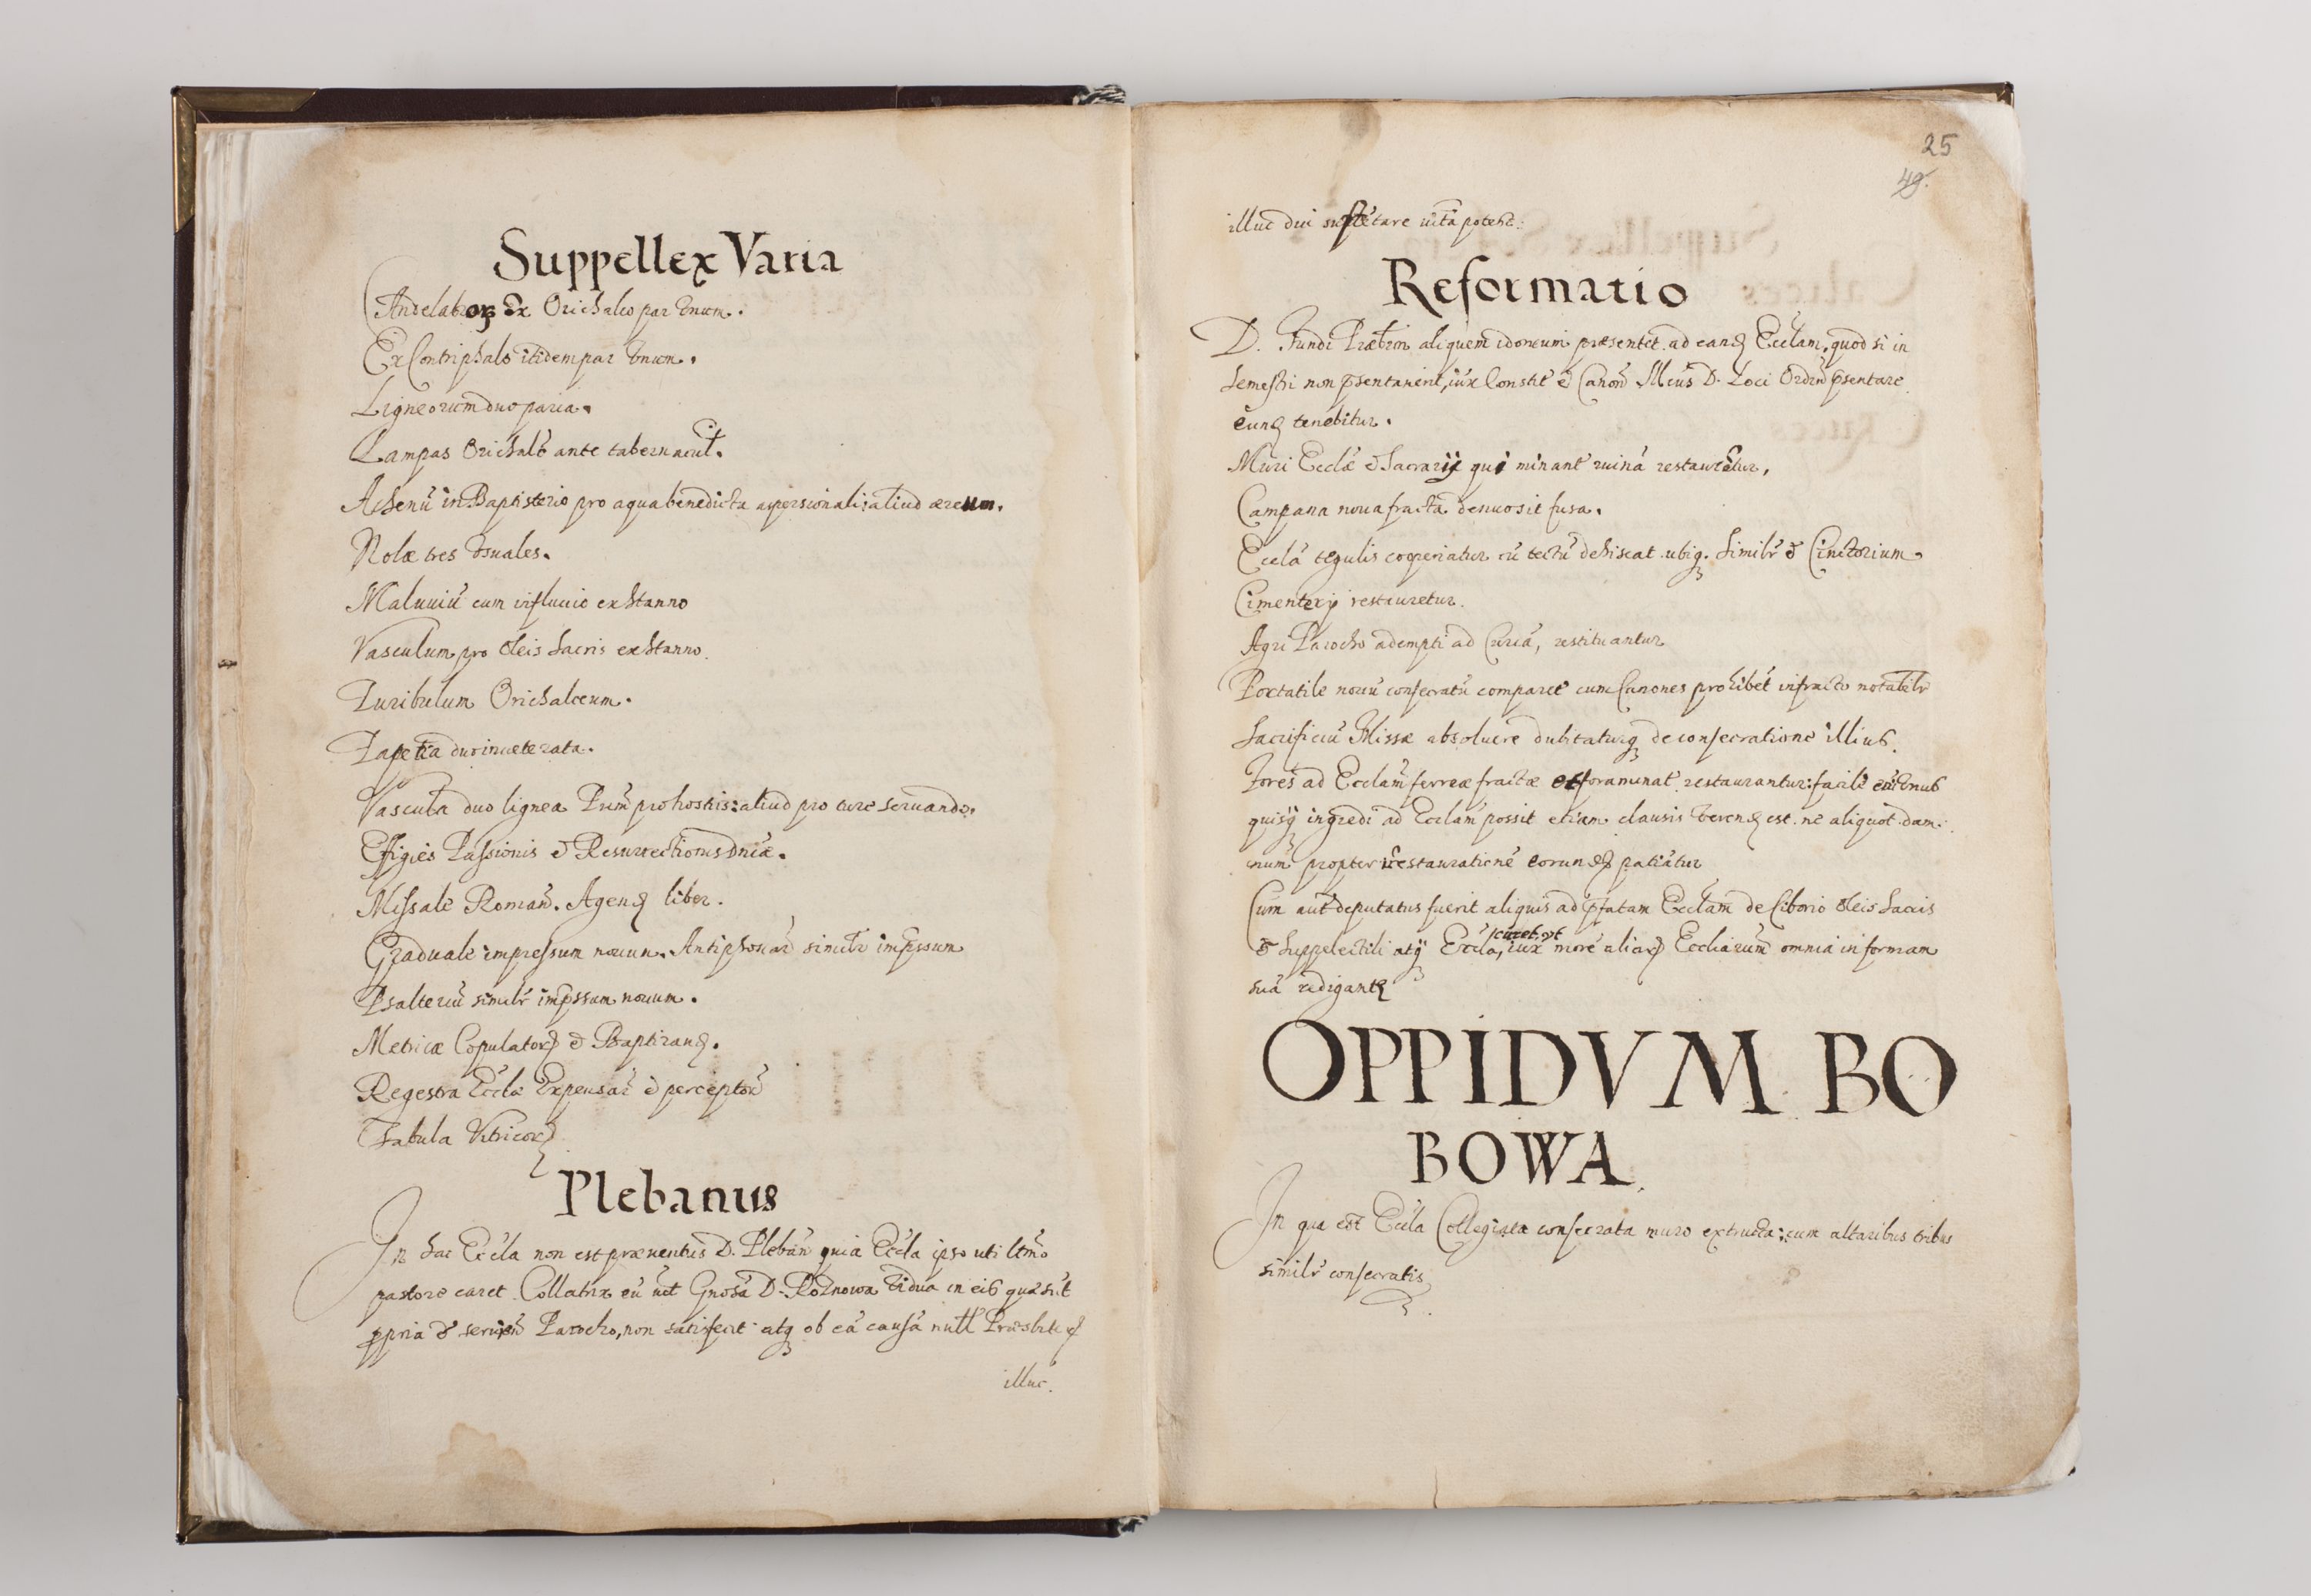 Suppellex Varia
Candelabrorꝝ Ex Orichalco par Vnum.
Ex Contriphalo itidem par Vnum.
Ligneorum duo paria.
Lampas Orichalc̃ ante tabernacul̃.
Ahenũ in Baptisterio pro aqua benedicta aspersionali: aliud æreum.
Nolæ tres Vsuales.
Maluuiũ cum influuio ex Stanno
Vasculum pro Oleis Sacris ex Stanno.
Turibulum Orichalceum.
Tapetia duo inueterata.
Vascula duo lignea Primũ pro hostiis: aliud pro ture seruando.
Effigies Passionis & Resurrectionis Dnicæ.
Missale Romañ. Agendꝝ liber.
Graduale impressum nouum. Antiphonar̃ similr̃ imp̃ssum
Psalteriũ similr̃ imp̃ssum nouum.
Metricæ Copulatorꝝ & Baptizandꝝ.
Regestra Eccła Expensar̃ & perceptor̃
Tabula Vitricorꝝ
Plebanus
In hac Eccła non est præuentus D. Plebañ quia Eccła ipso uti ltmo
pastore caret. Collatrix eñ Gnosa D. Roznowa Vidua in eis quæ sũt
ꝓpria & Parocho, non satisfecit atq ob eã causã null
illuc.
25
49.
illuc dui potest.
Reformatio
D. Fundi Præbrm aliquem idoneum præsentet ad eandꝝ Ecclam, quod si in
semestri non p̃sentauerit, iux̃ Constit̃ & Canoñ D. Loci Ordiñ p̃sentare
eundꝝ tenebitur.
Muri Ecclæ & Sacrarij qui minant̃ ruinã restaurẽtur,
Campana noua fracta denuo sit fusa.
Ecclã tegulis cooperiatur cũ tectũ dehiscat ubiq. Similr̃ & Cinctorium
Cimenterij restauretur.
Agri Parocho adempti ad Curiã, restituantur
Portatile nouũ consecratũ comparet cum Canones prohibẽt infracto notabilr̃
Sacrificiũ Missæ absoluere dubitaturq de consecratione illius.
Fores ad Ecclam̃ ferreæ fractæ et foraminat̃ restaurantur: facile
quisq ingredi ad Ecclam̃ possit etiam clausis Verendꝝ est ne aliquot dam-
num propter restaurationẽ eorundꝝ patiatur
Cum aut̃ deputatus fuerit aliquis ad p̃fatam Ecclam̃ de Ciborio Oleis Sacris
& Suppelectili atq Eccła, curet, vt iux̃ morẽ aliarꝝ Eccliarum omnia in formam
suã redigantꝝ
OPPIDVM BO
BOWA.
In qua est Eccła Collegiata consecrata muro extructa: cum altaribus tribus
similr̃ consecratis